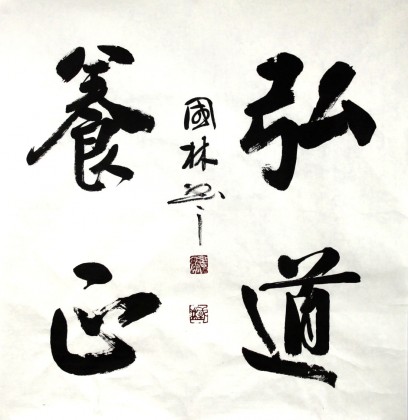 弘道
養正
國林